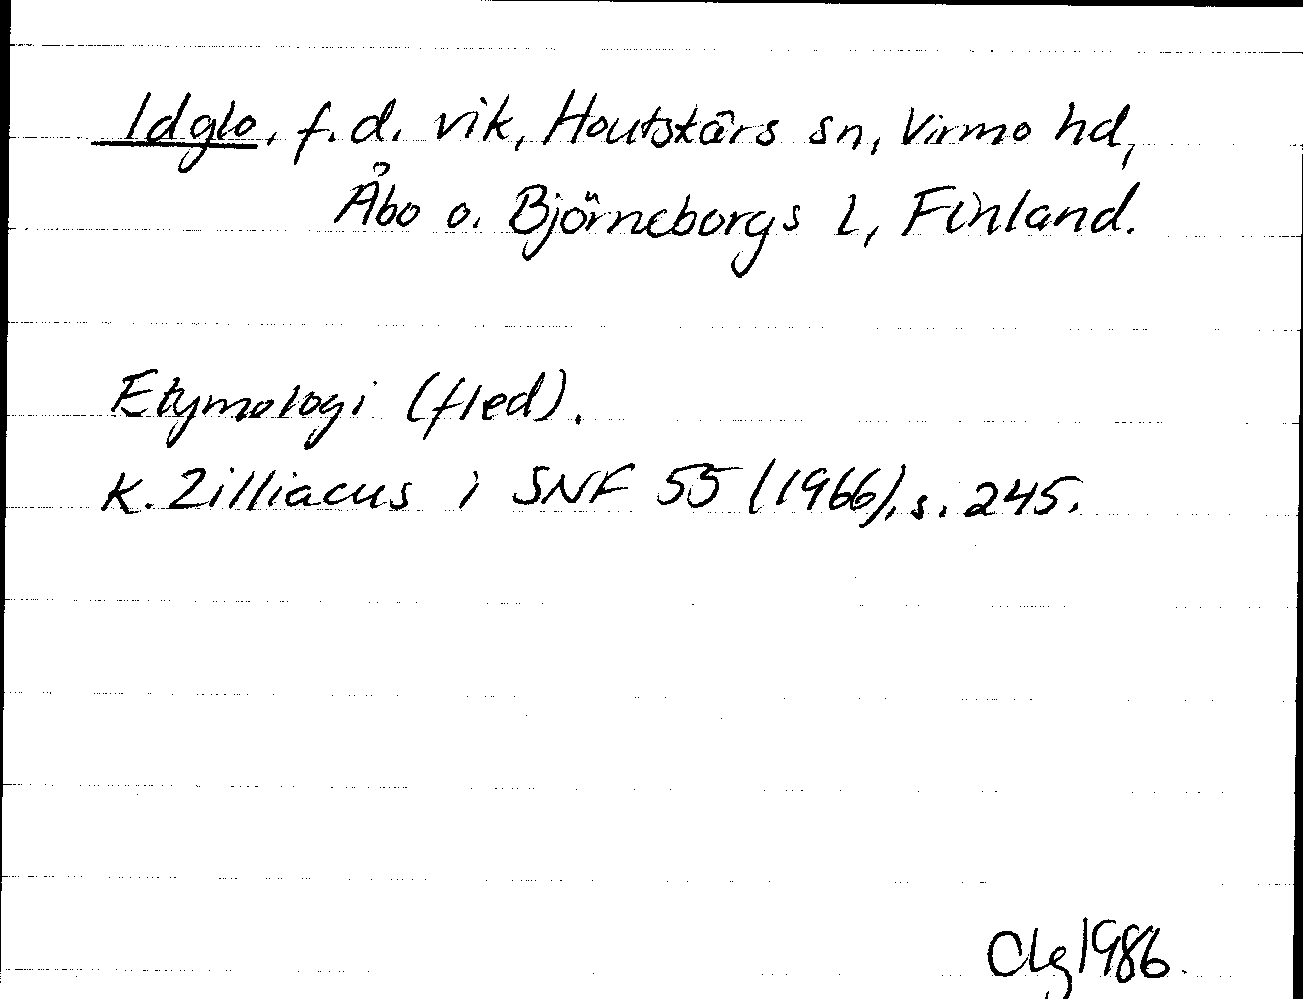 Idglo, f.d. vik, Houtskärs sn, Virmo hd,
Åbo o. Björneborgs l, Finland.
Etymologi (fled).
K. Zilliacus i SNF 55 (1966), s. 245.
Clg 1986.